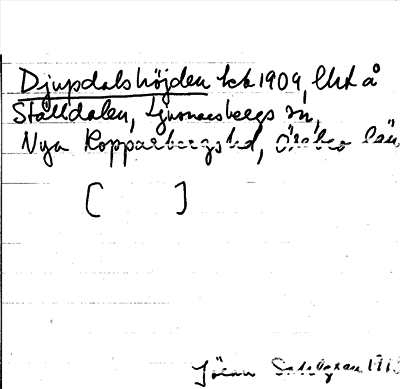 Djupdalshöjden kbt 1909, lht å
Ställdalen, Ljusnarsbergs sn,
Nya Kopparbergs hd, Örebro län.
[ ]
Jöran Sahlgren 1913